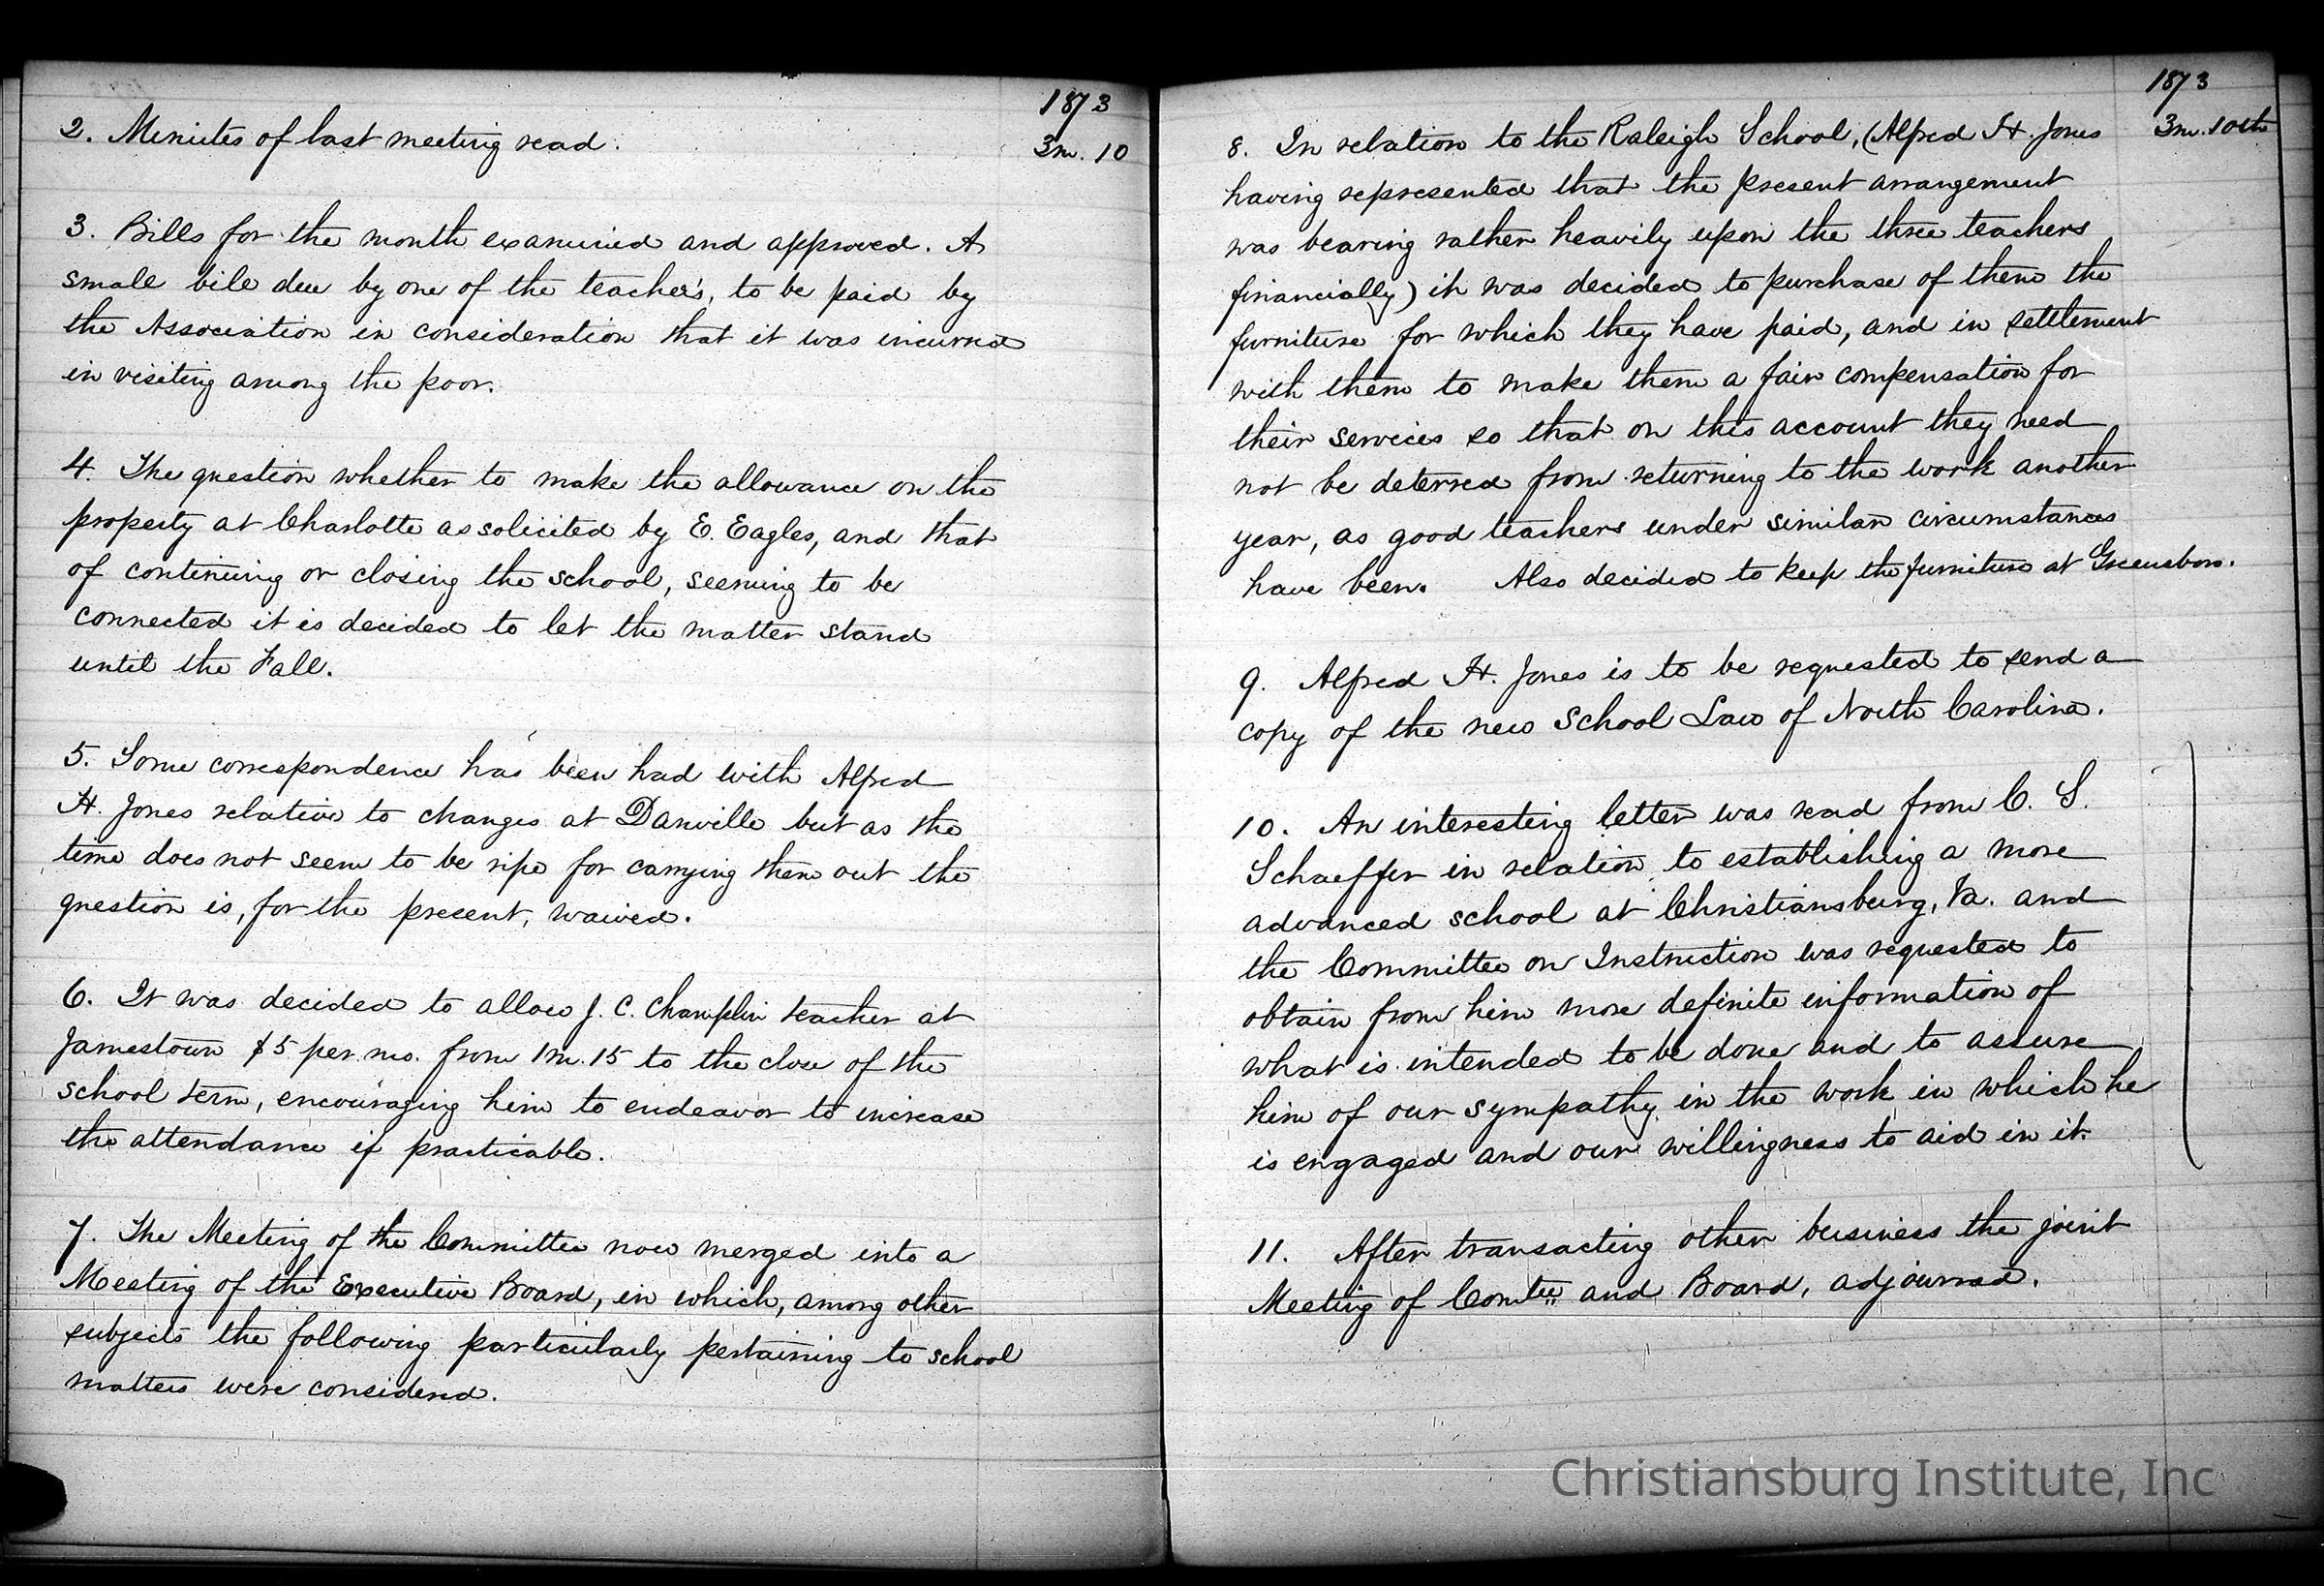 1873
3m. 10
2. Minutes of last meeting read.
3. Bills for the month examined and approved. A
small bill due by one of the teachers, to be paid by
the Association in consideration that it was incurred
in visiting among the poor.
4. The question whether to make the allowance on the
property at Charlotte as solicited by E. Eagles, and that
of continuing or closing the school, seeming to be
connected it is decided to let the matter stand
until the Fall.
5. Some correspondence has been had with Alfred
H. Jones relative to changes at Danville but as the
time does not seem to be ripe for carrying them out the
question is, for the present, waived.
6. It was decided to allow J. C. Champlin teacher at
Jamestown $5 per mo. from 1m. 15 to the close of the
school term, encouraging him to endeavor to increase
the attendance if practicable.
7. The Meeting of the Committee now merged into a
Meeting of the Executive Board, in which, among other
subjects the following particularly pertaining to school
matters were considered.
1873
3m. 10th
8. In relation to the Raleigh School, (Alfred H. Jones
having represented that the present arrangement
was bearing rather heavily upon the three teachers
financially) it was decided to purchase of them the
furniture for which they have paid, and in settlement
with them to make them a fair compensation for
their services so that on this account they need
not be deterred from returning to the work another
year, as good teachers under similar circumstances
have been. Also decided to keep the furniture at Greensboro.
9. Alfred H. Jones is to be requested to send a
copy of the new School Law of North Carolina.
10. An interesting letter was read from C. S.
Schaeffer in relation to establishing a more
advanced school at Christiansburg, Va. and
the Committee on Instruction was requested to
obtain from him more definite information of
what is intended to be done and to assure
him of our sympathy in the work in which he
is engaged and our willingness to aid in it.
11. After transacting other business the joint
Meeting of Comtee and Board, adjourned.
Christiansburg Institute, Inc